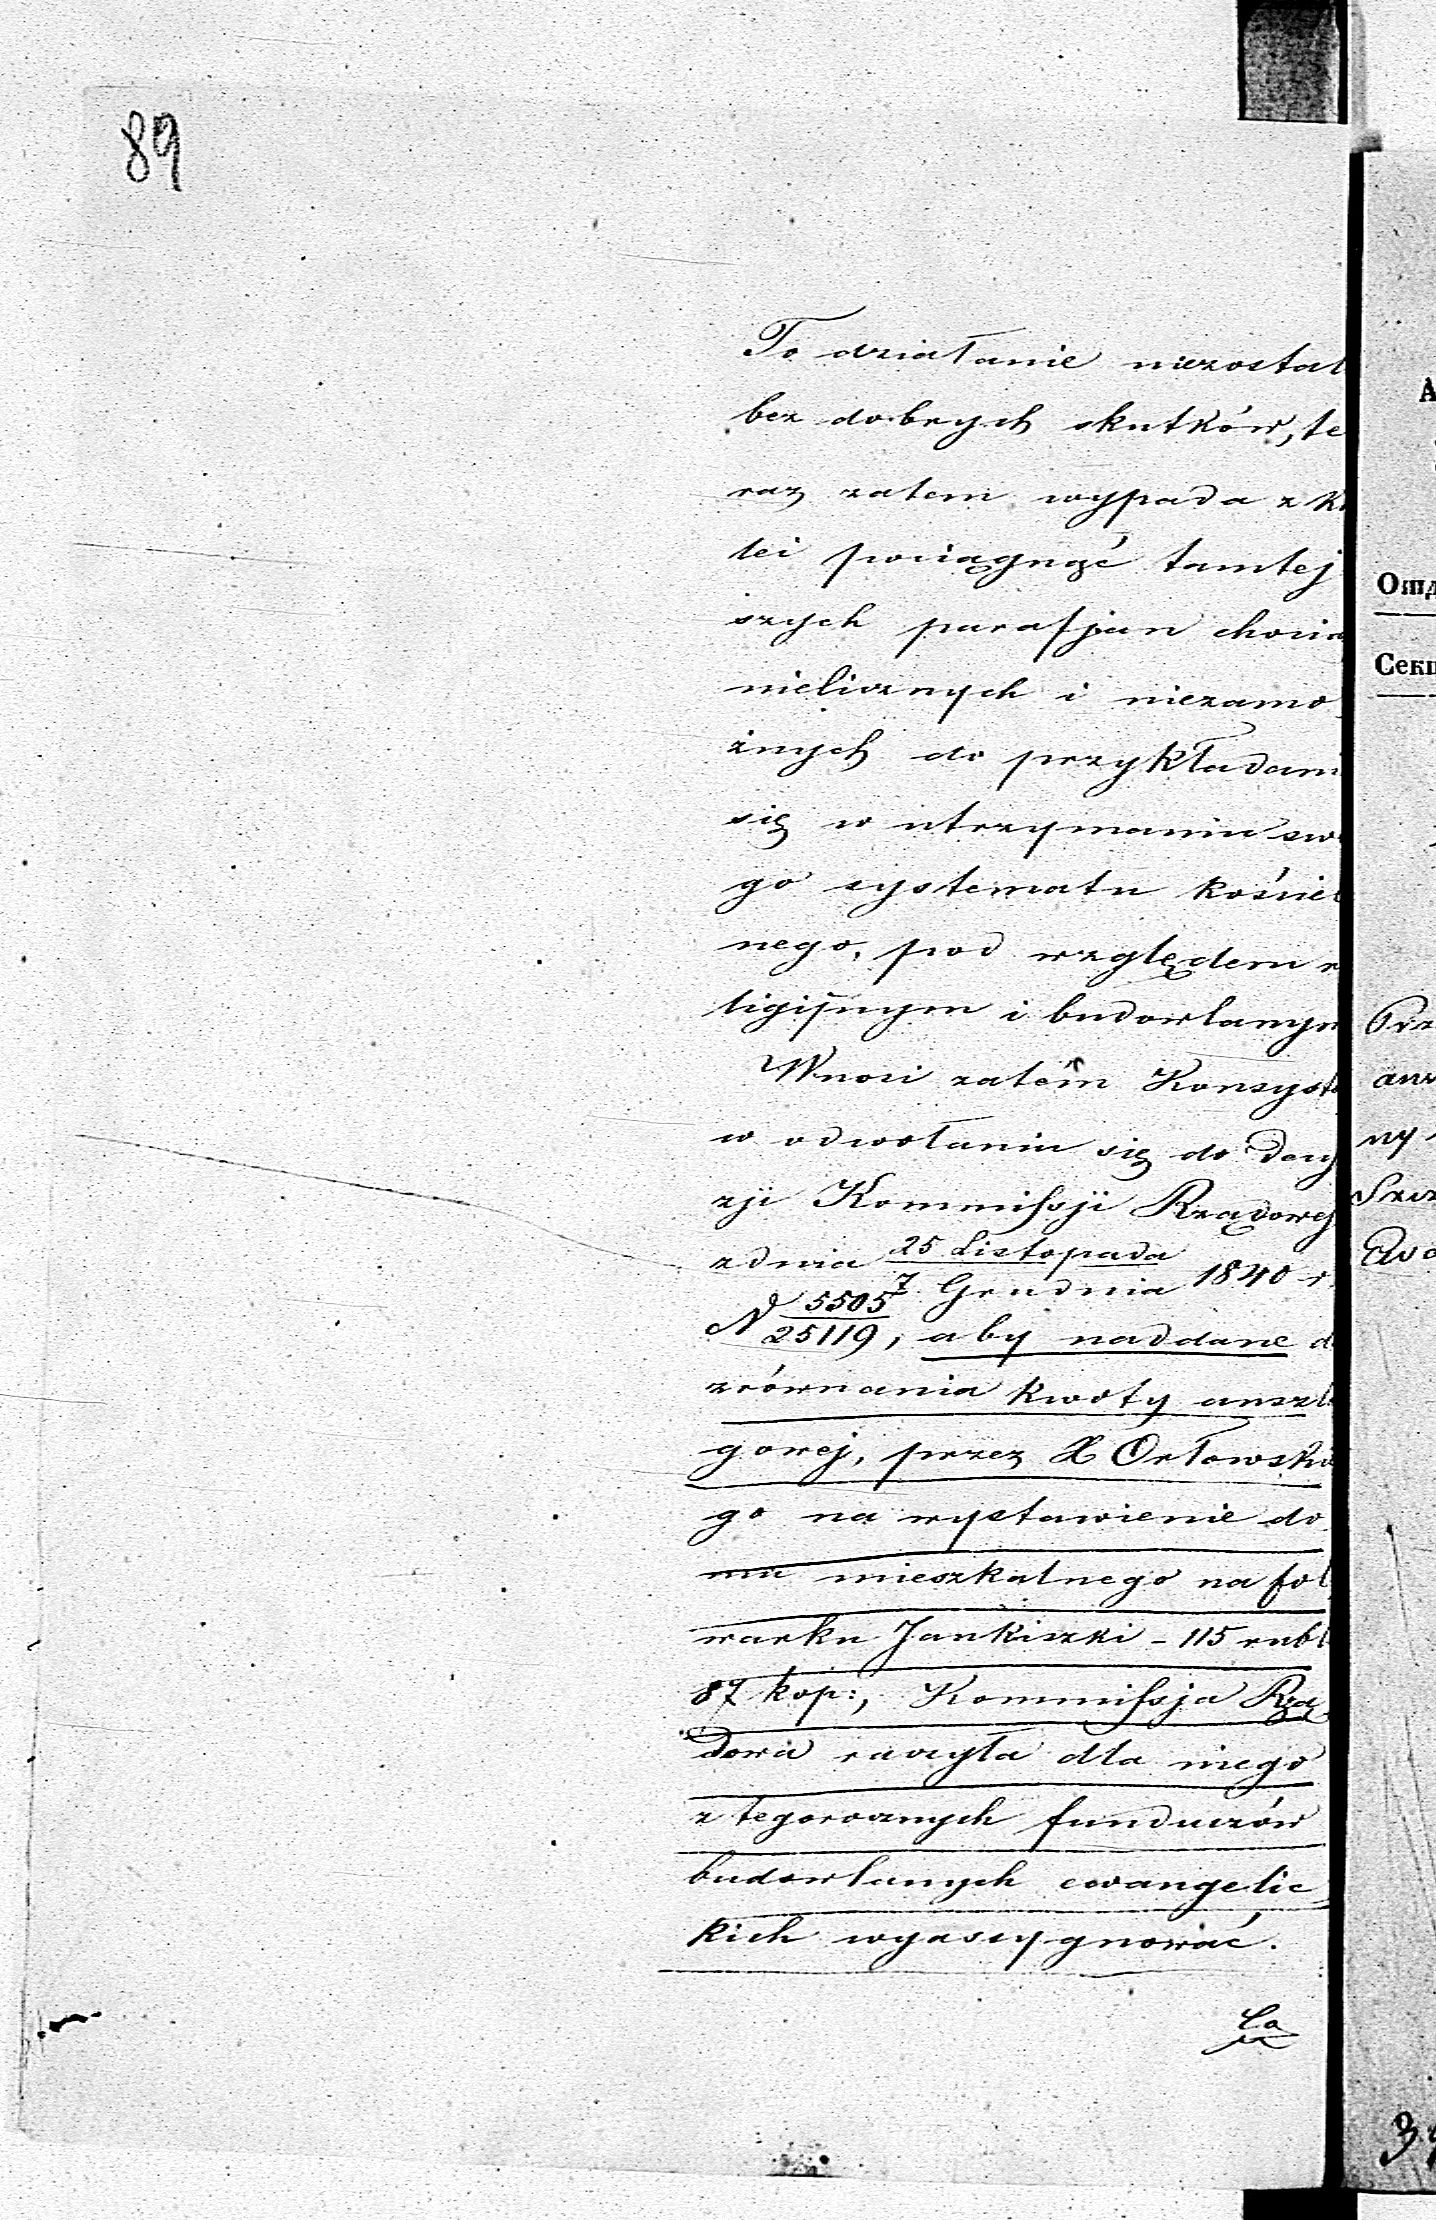 89
To działanie niezostał
bez dobrych skutków, te
raz zatem wypada z k
lei pociągnąć tamtej
szych parafjan chocia
nielicznych i niezamo
żnych do przykładani
się w utrzymaniu sw
go systematu kościel
nego, pod względem r
ligijnym i budowlanym
Wnosi zatém Konsyst
w odwołaniu się do decy
zji Kommissji Rządowej
z dnia 25 Listopada
7 Grudnia 1840 r
N 5505
25119, aby naddane d
zrównania kwoty anszl
gowej, przez X Orłowski
go na wystawienie do
mu mieszkalnego na fol
warku Jankiszki - 115 rubl
87 kop:, Kommissja Rzą
dowa raczyła dla niego
z tegorocznych funduszów
budowlanych ewangelic
kich wyassygnować.
Co
А
Отд
Секц
Prz
ny